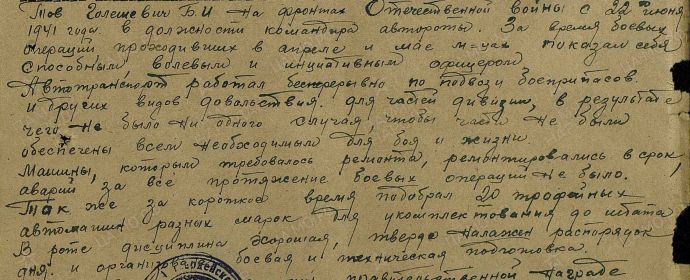 Тов Голешевич Б.И на фронтах Отечественной войны с 22 июня
1941 года в должности командира автороты. За время боевых
операций проходивших в апреле и мае м-цах показал себя
способным, волевым и инциативным офицером
Автотранспорт работал бесперерывно по подвозу боеприпасов
и других видов довольствия для частей дивизии, в результате
чего не было ни одного случая, чтобы части не были
обеспечены всем необходимым для боя и жизни.
Машины, которым требовалось ремонта, ремонтировались в срок,
аварий за всё протяжение боевых операций не было.
Так же за короткое время подобрал 20 трофейных
автомашин разных марок для укомплектования до штата
В роте дисциплина хорошая, твердо налажен распорядок
дня и организована боевая и техническая подготовка.
правительственной награде